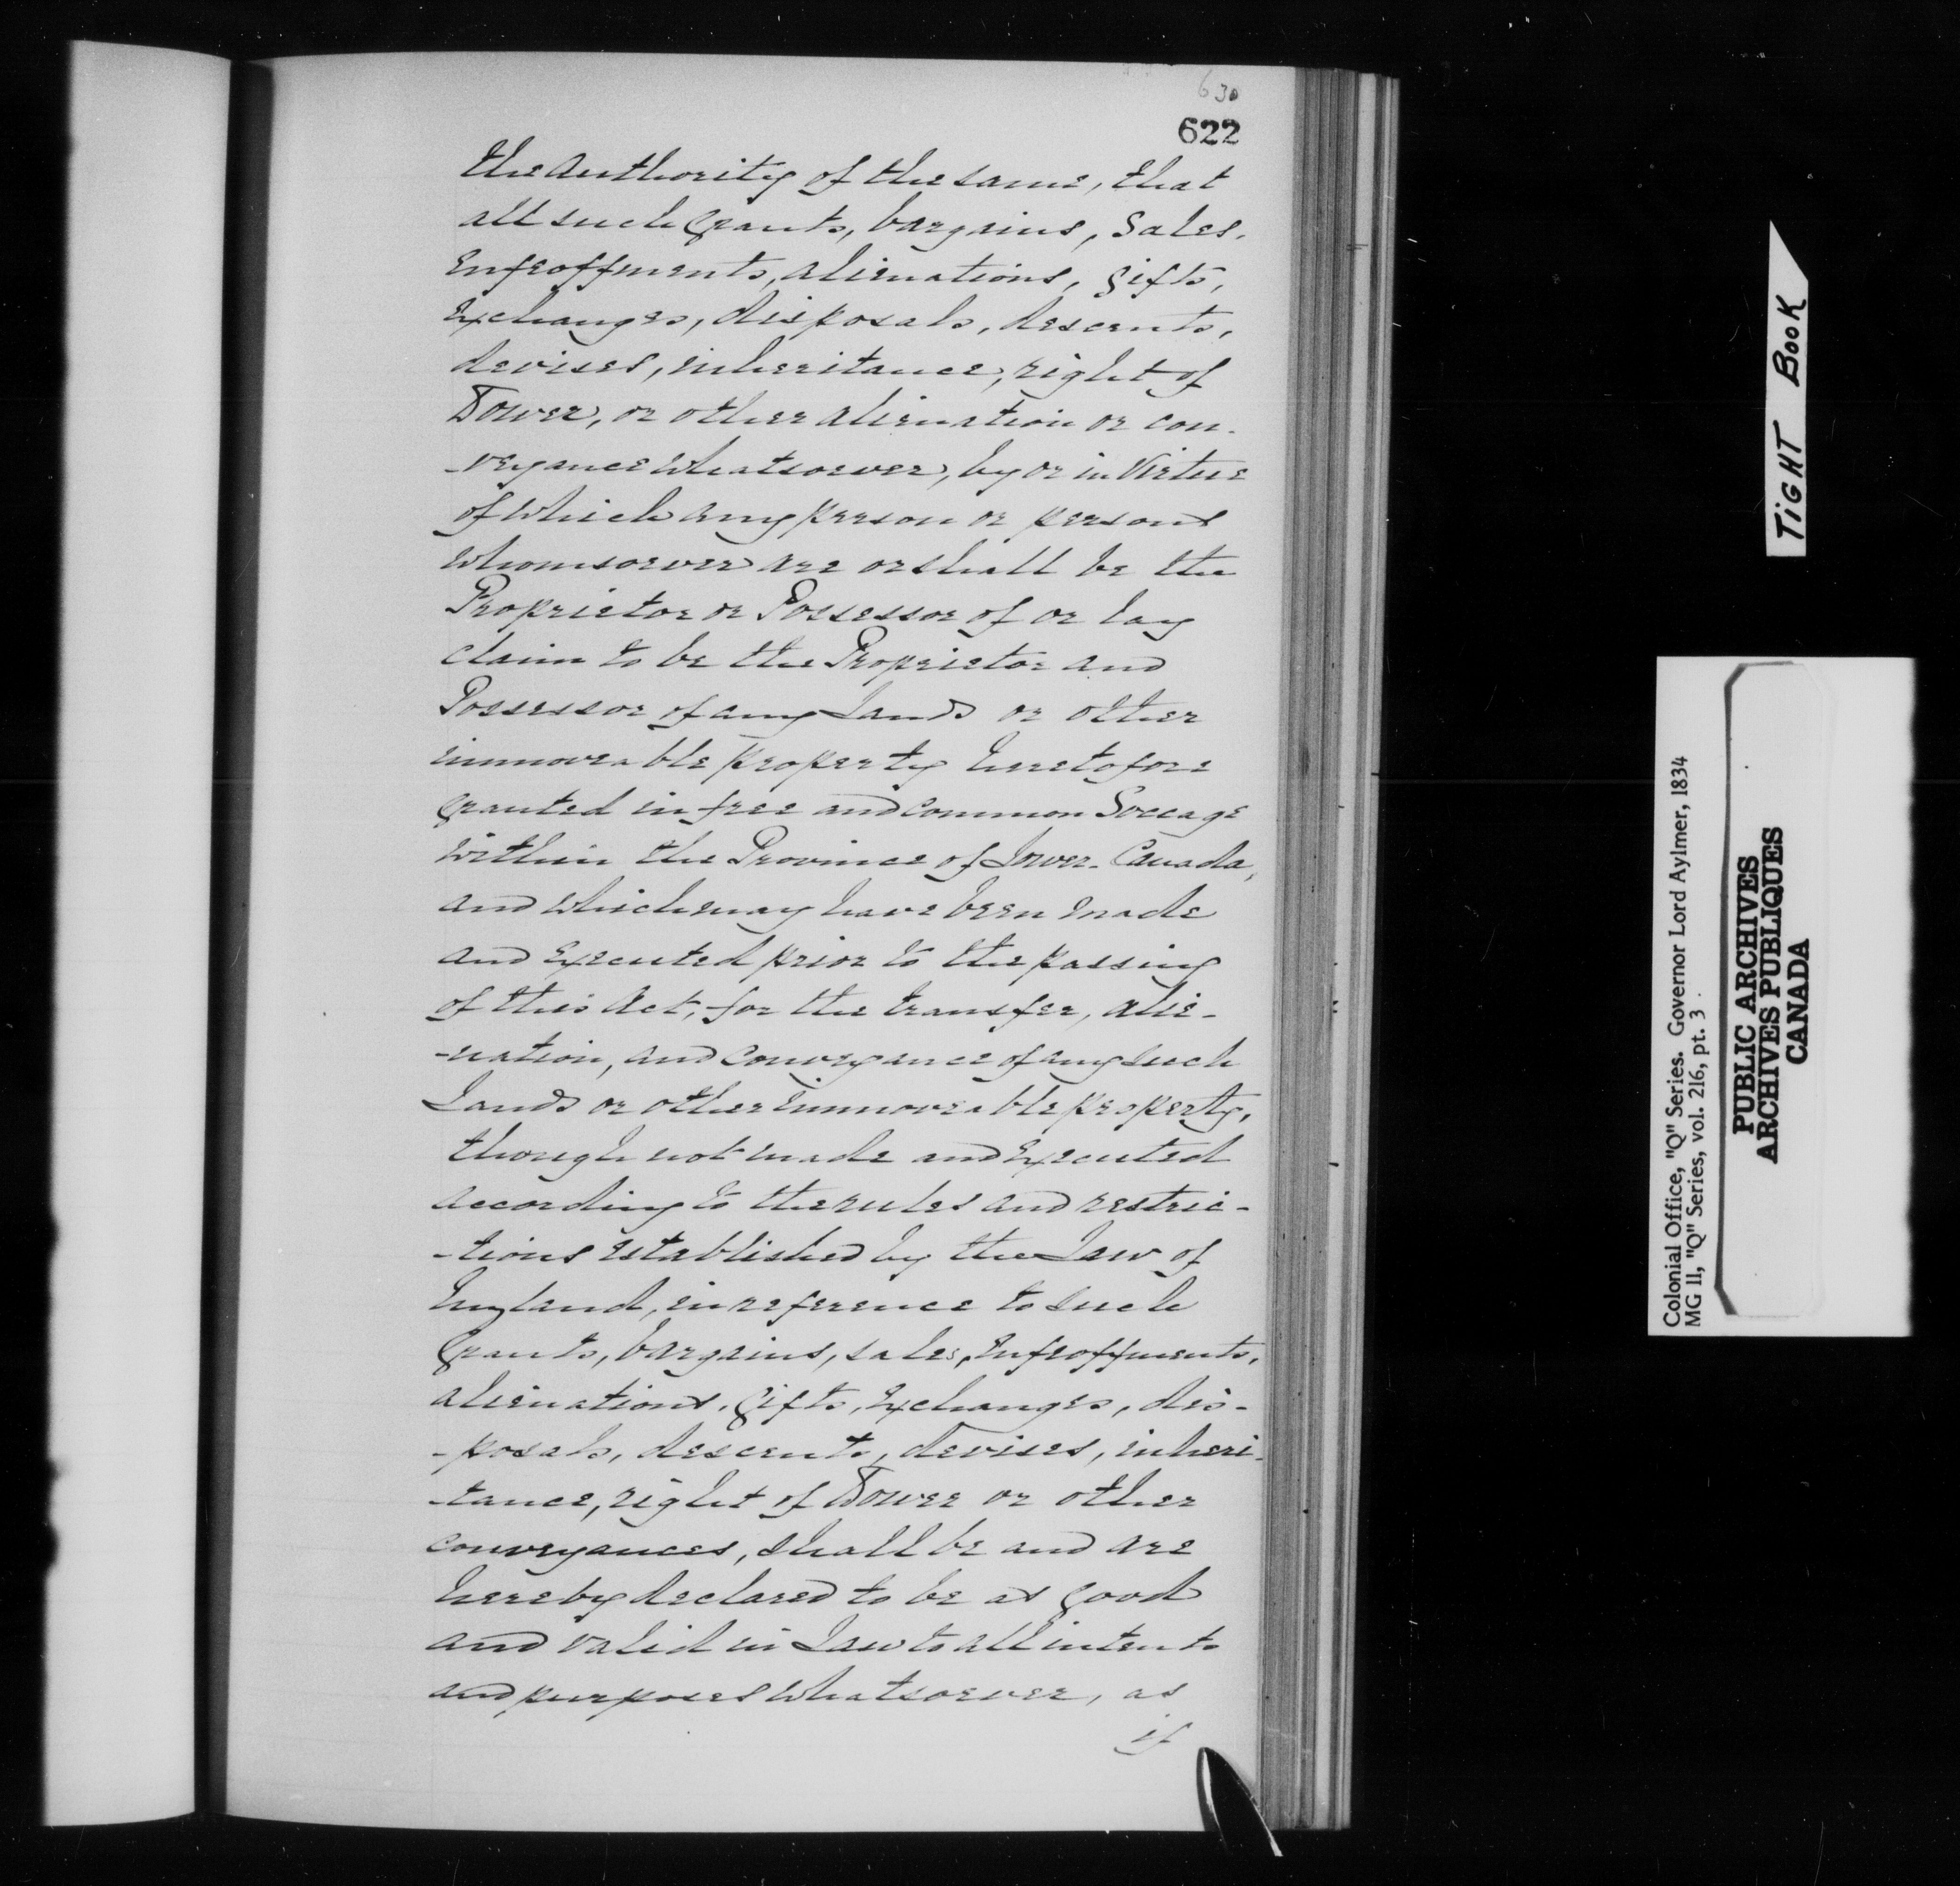 630
622
the authority of the same, that
all such Grants, bargains, Sales,
Enfeoffments, alienations, gifts,
Exchanges, disposals, descents,
devises, inheritance, right of
Dower, or other alienation or con-
-veyance whatsoever, by or in Virtue
of which any person or persons
whomsoever are or shall be the
Proprietor or Possessor of or lay
claim to be the Proprietor and
Possessor of any Lands or other
immoveable property heretofore
granted in free and common Soccage
within the Province of Lower-Canada,
and which may have been made
and Executed prior to the passing
of this Act, for the transfer, alie-
-nation, and Conveyance of any such
Lands or other immoveable property,
though not made and Executed
according to the rules and restric-
-tions Established by the Law of
England, in reference to such
Grants, bargains, sales, Enfeoffments,
alienations, Gifts, Exchanges, dis-
-posals, descents, devises, inheri-
-tance, right of Dower or other
conveyances, shall be and are
hereby declared to be as good
and valid in Law to all intents
and purposes whatsoever, as
if
TIGHT BOOK
Colonial Office, "Q" Series. Governor Lord Aylmer, 1834
MG 11, "Q" Series, vol. 216, pt. 3.
PUBLIC ARCHIVES
ARCHIVES PUBLIQUES
CANADA